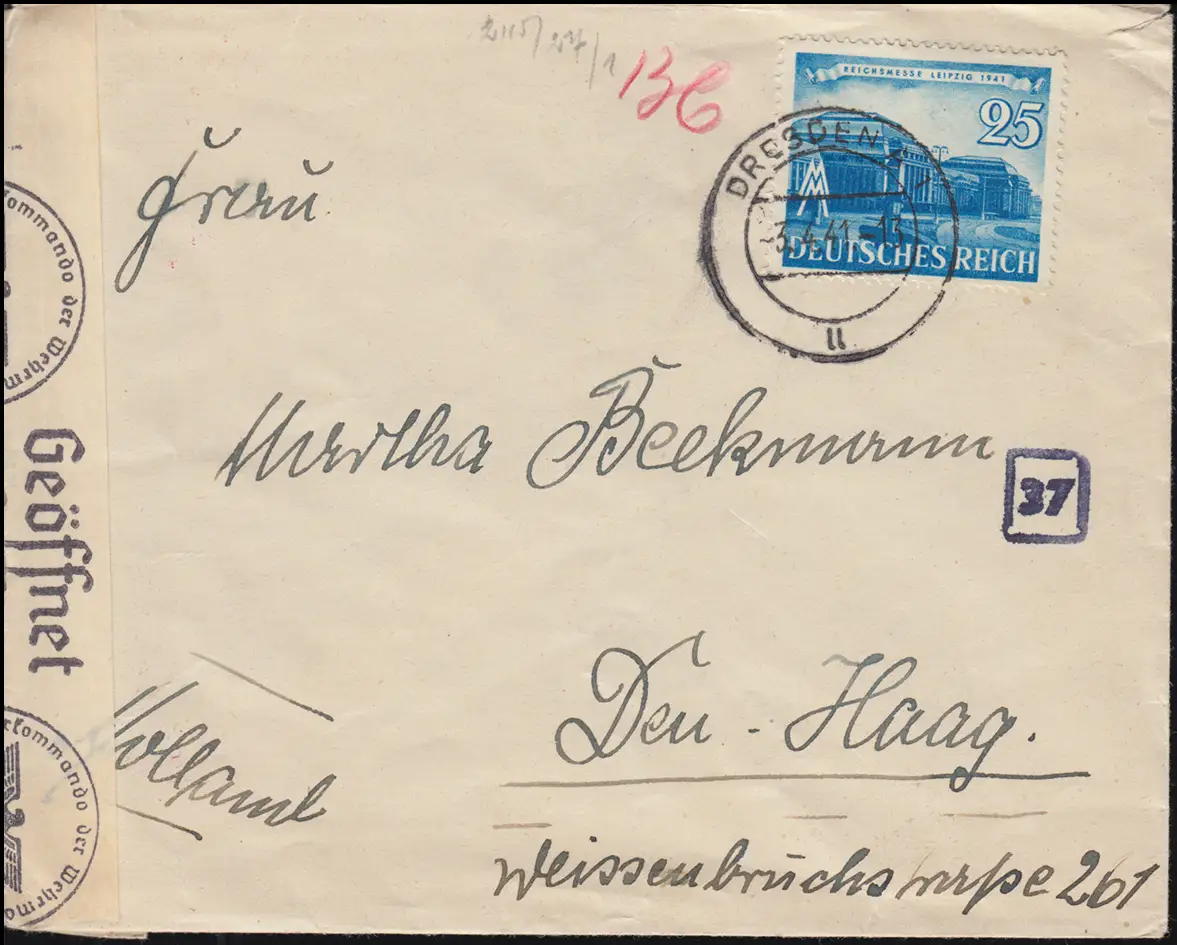 215/27/1
BC
REICHSMESSE LEIPZIG 1941
25
DEUTSCHES REICH
DRESDEN A 1
-3.4.41.-13
ll
Frau
Martha Beekmann
37
Den-Haag.
Holland
Weissenbruchstraße 261
kommando der Wehrma
Geöffnet
rkommando der Wehrma